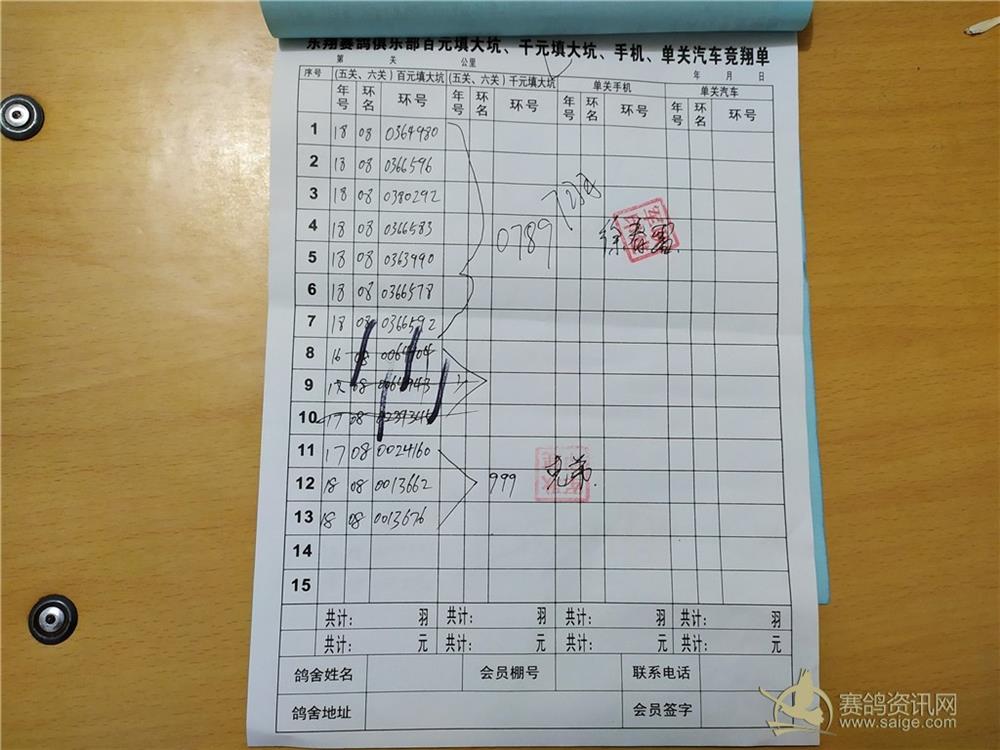 东翔赛鸽俱乐部百元填大坑、千元填大坑、手机、单关汽车竞翔单
第 关 公里 年 月 日
序号 (五关、六关)百元填大坑 (五关、六关)千元填大坑 单关手机 单关汽车
年号 环名 环号 年号 环名 环号 年号 环名 环号 年号 环名 环号
1 18 08 0364980
2 18 08 0366596
3 18 08 0380292
4 18 08 0366583 0789
5 18 08 0363990
6 18 08 0366578
7 18 08 0366592
8 16 08
9 17 08
10 17 08
11 17 08 0024160
12 18 08 0013662 999 兄弟
13 18 08 0013676
14
15
共计: 羽 共计: 羽 共计: 羽 共计: 羽
共计: 元 共计: 元 共计: 元 共计: 元
鸽舍姓名 会员棚号 联系电话
鸽舍地址 会员签字
赛鸽资讯网
www.saige.com